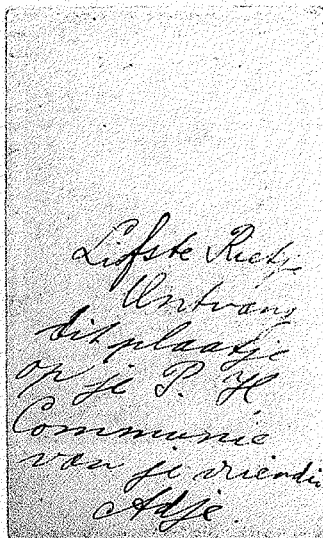 Liefste Rietje
Ontvang
dit plaatje
op je P. H
Communie
van je vriendin
Adje.